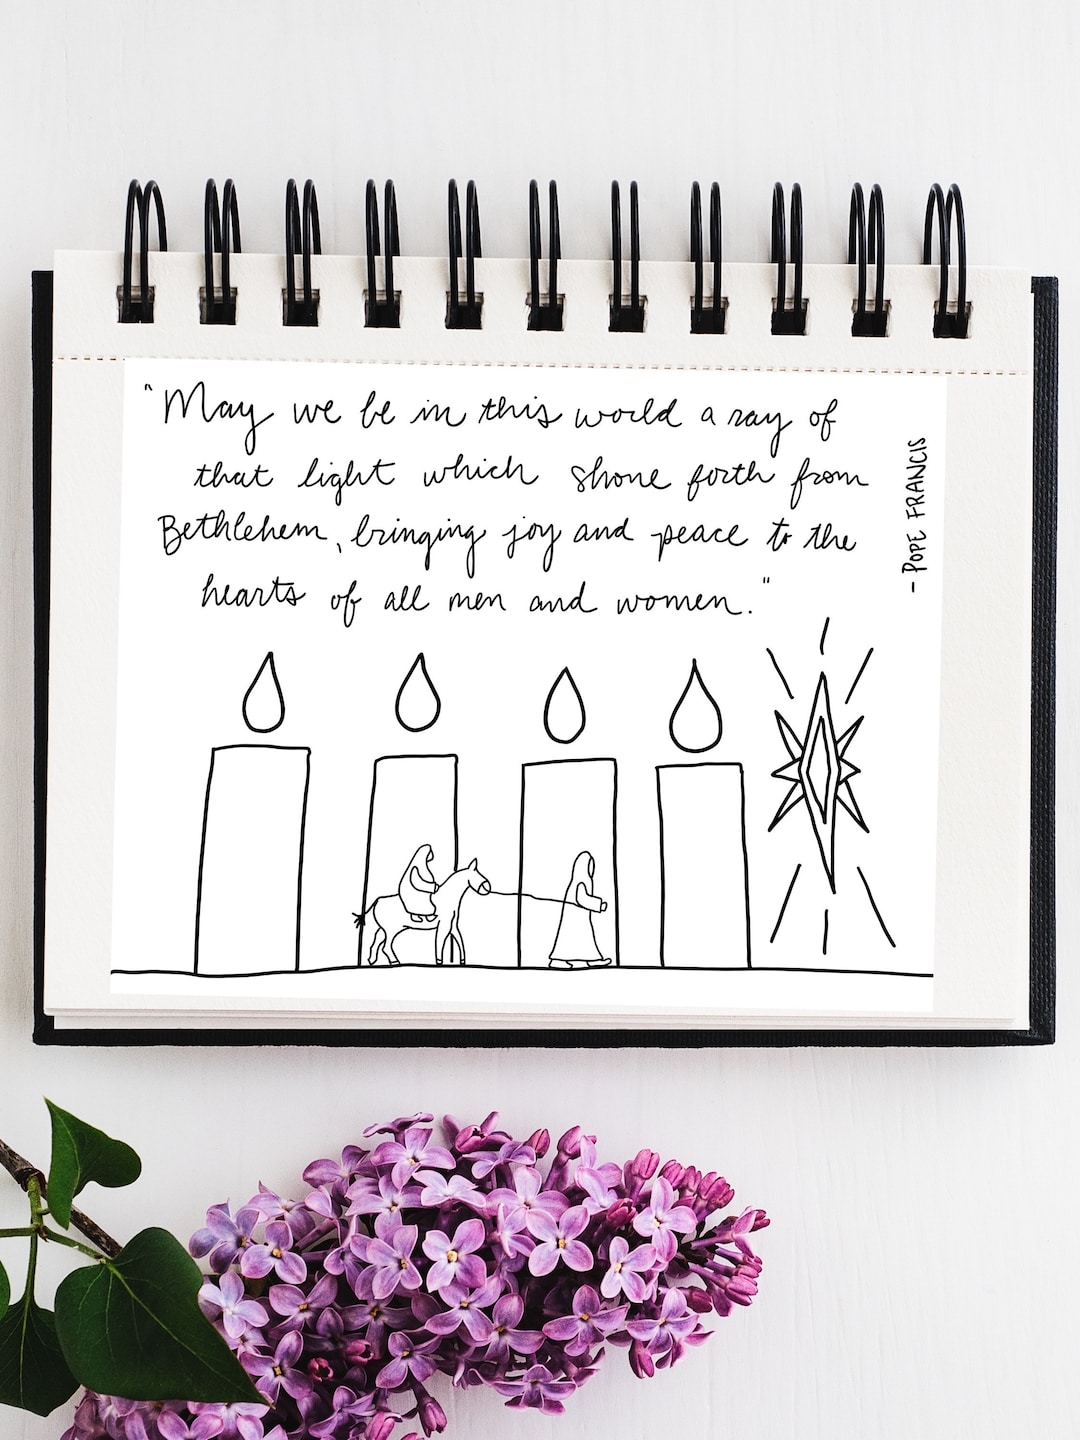 "May we be in this world a ray of
that light which shone forth from
Bethlehem, bringing joy and peace to the
hearts of all men and women."
- POPE FRANCIS